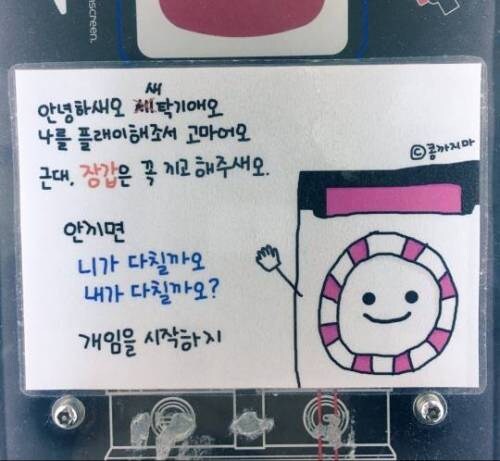 ascreen.
안녕하새오 새탁기애오
나를 플래이해조서 고마어오
ⓒ콩까지마
근대, 장갑은 꼭 끼고 해주새오.
안끼면
니가 다칠까오
내가 다칠까오?
개임을 시작하지